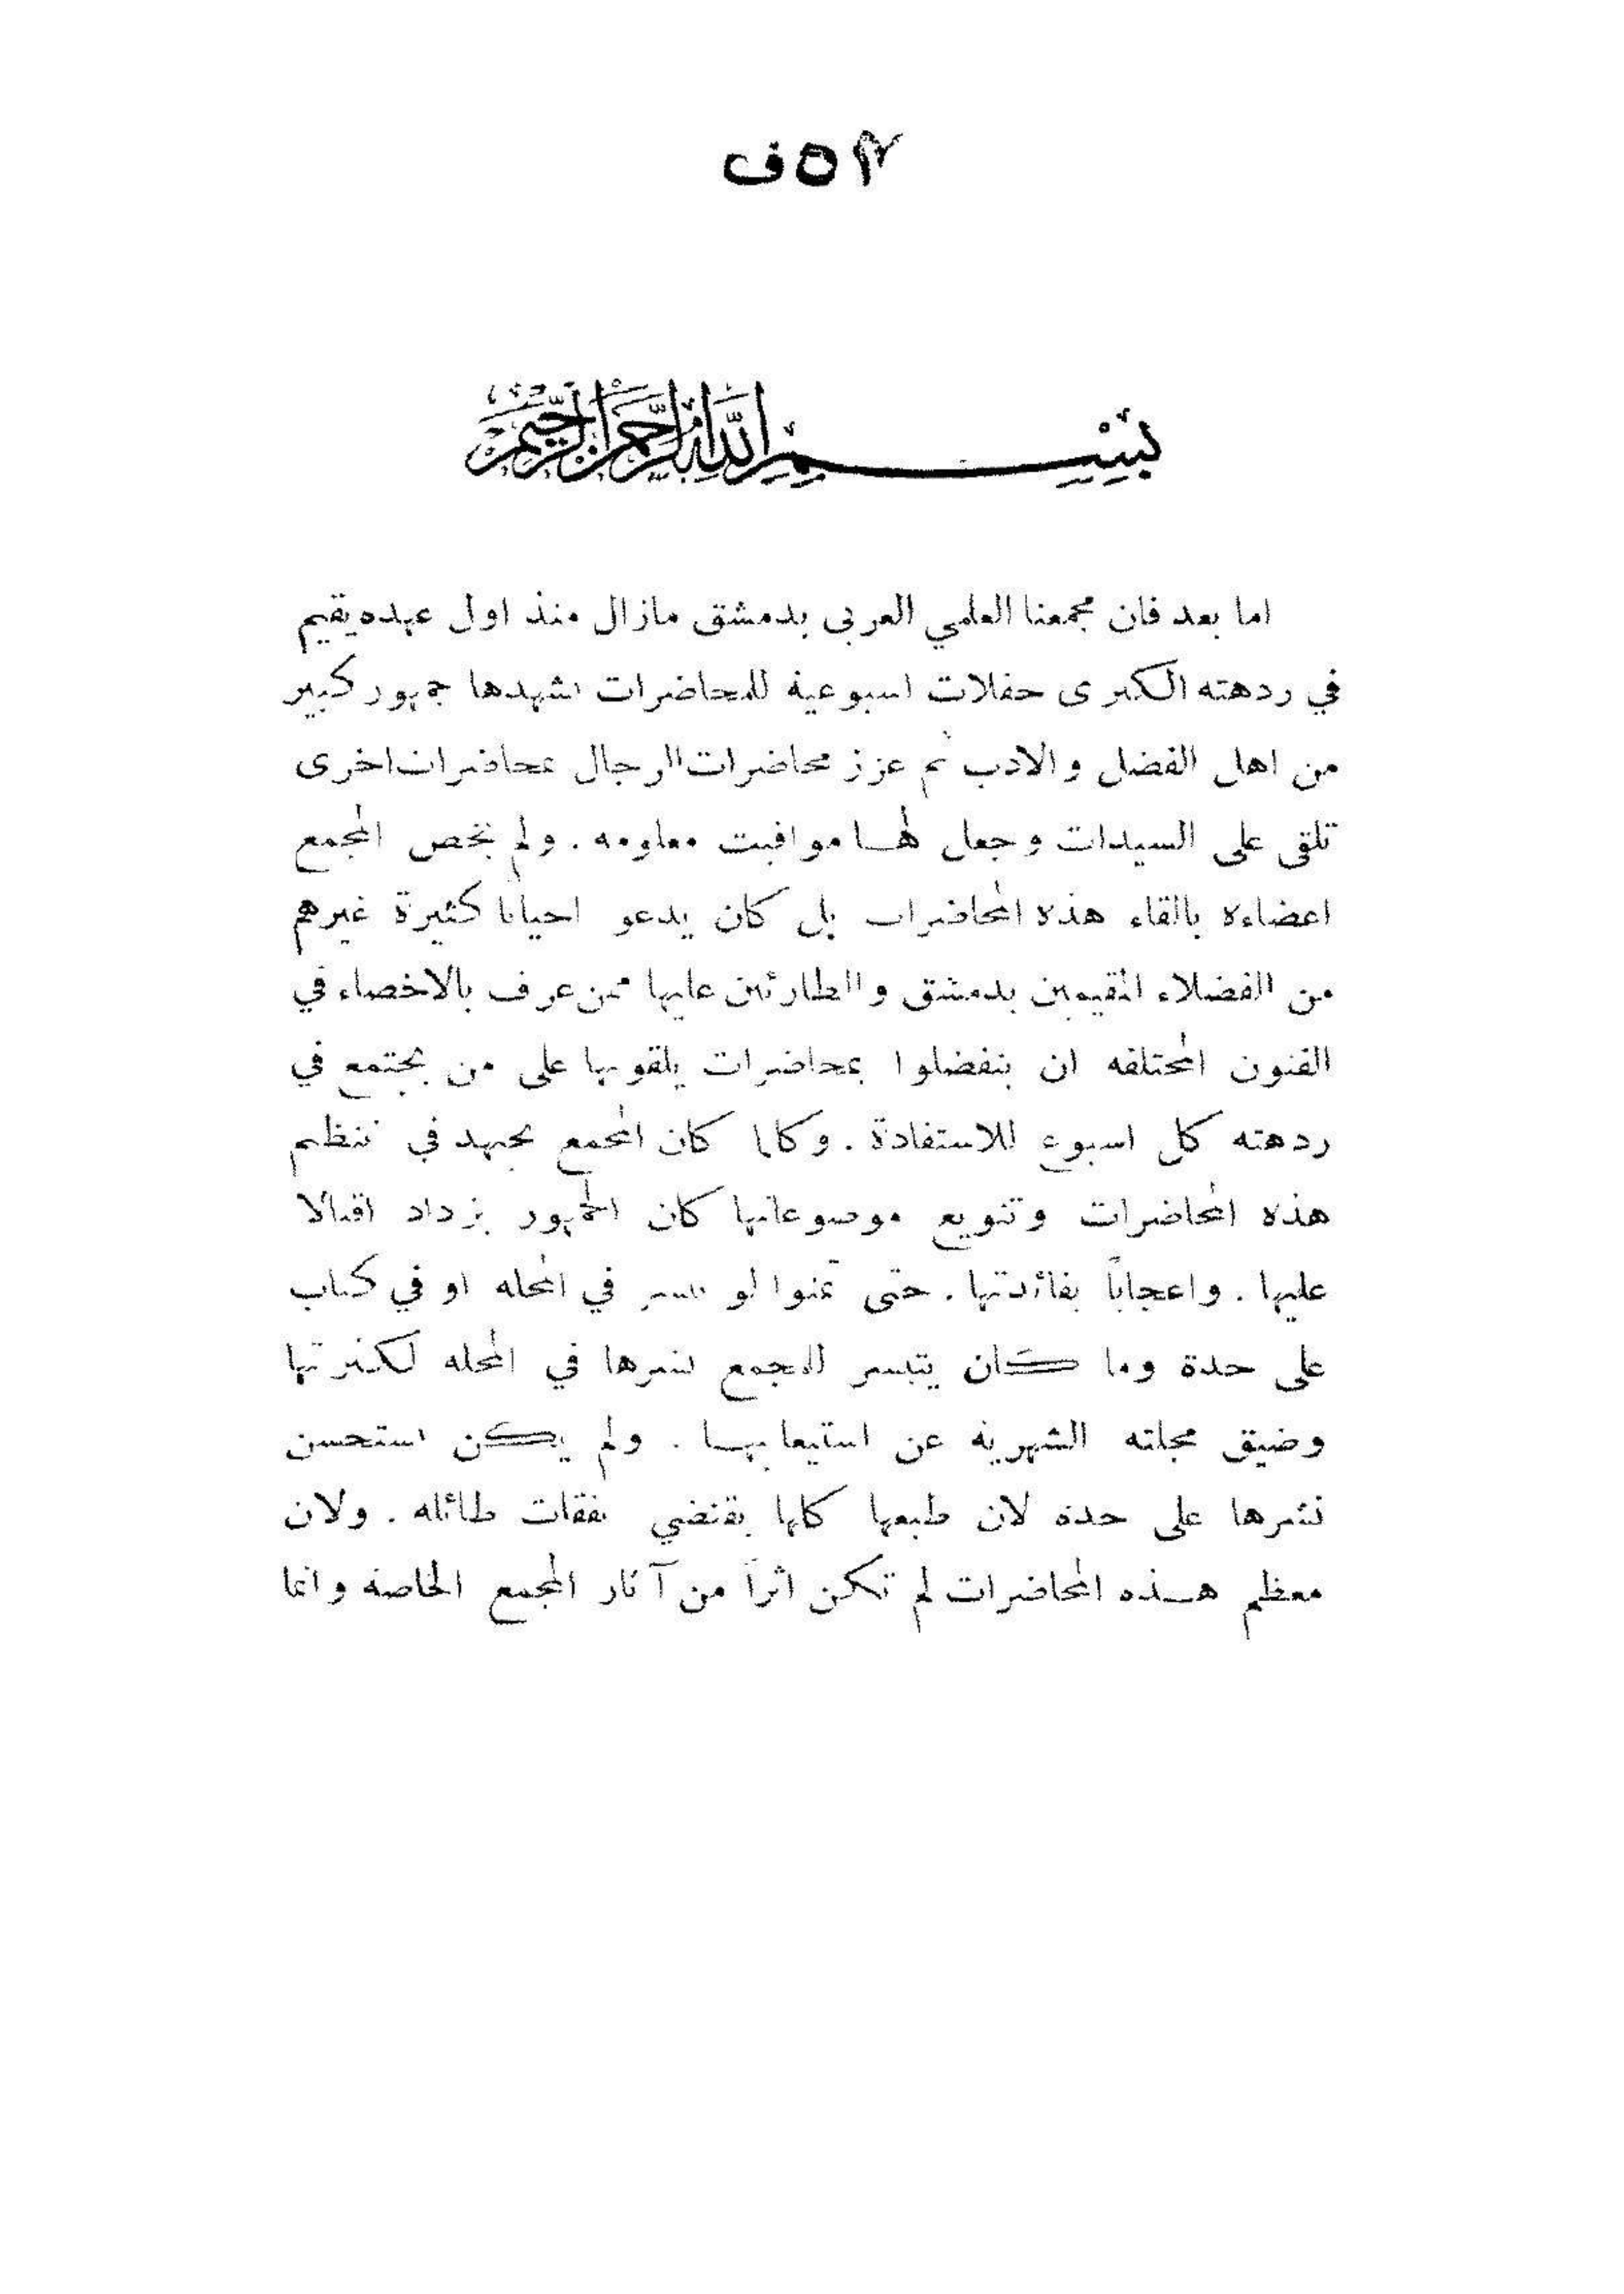 بِسْمِ اللَّهِ الرَّحْمَنِ الرَّحِيمِ
اما بعد فان مجمعنا العلمي العربي بدمشق مازال منذ اول عهده يقيم
في ردهته الكبرى حفلات اسبوعية للمحاضرات تشهدها جمهور كبير
من اهل الفضل والادب ثم عزز محاضرات الرجال بمحاضرات اخرى
تلقى على السيدات وجعل لهـا مواقيت معلومة . ولم يخص المجمع
اعضاءه بالقاء هذه المحاضرات بل كان يدعو احياناً كثيرة غيرهم
من الفضلاء المقيمين بدمشق والطارئين عليها ممن عرف بالاخصاء في
الفنون المختلفة ان يتفضلوا بمحاضرات يلقونها على من يجتمع في
ردهته كل اسبوع للاستفادة . وكلما كان المجمع يجتهد في تنظيم
هذه المحاضرات وتنويع موضوعاتها كان الجمهور يزداد اقبالا
عليها . واعجاباً بفائدتها . حتى تمنوا لو تنشر في المجلة او في كتاب
على حدة وما كان يتيسر للمجمع نشرها في المجلة لكثرتها
وضيق مجلته الشهرية عن استيعابهـا . ولم يكن استحسن
نشرها على حدة لان طبعها كلها يقتضي نفقات طائلة . ولان
معظم هـذه المحاضرات لم تكن اثراً من آثار المجمع الخاصة وانما